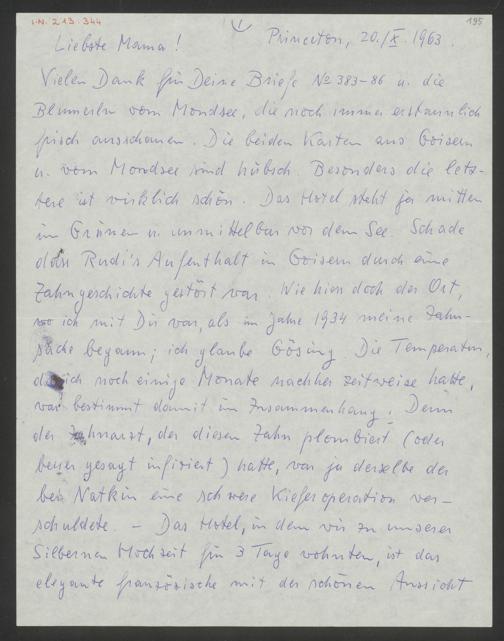 I.N. 213.344
195
Princeton, 20./X. 1963.
Liebste Mama!
Vielen Dank für Deine Briefe No 383-86 u. die
Blumerln vom Mondsee, die noch immer erstaunlich
frisch ausschauen. Die beiden Karten aus Goisern
u. vom Mondsee sind hübsch. Besonders die letz-
tere ist wirklich schön. Das Hotel steht ja mitten
im Grünen u. unmittelbar vor dem See. Schade
dass Rudi's Aufenthalt in Goisern durch eine
Zahngeschichte gestört war. Wie hiess doch der Ort,
wo ich mit Dir war, als im Jahre 1934 meine Zahn-
sache begann; ich glaube Gösing. Die Temperatur,
die ich noch einige Monate nachher zeitweise hatte,
war bestimmt damit im Zusammenhang. Denn
der Zahnarzt, der diesen Zahn plombiert (oder
besser gesagt infiziert) hatte, war ja derselbe der
bei Natkin eine schwere Kieferoperation ver-
schuldete. – Das Hotel, in dem wir zu unserer
Silbernen Hochzeit für 3 Tage wohnten, ist das
elegante französische mit der schönen Aussicht